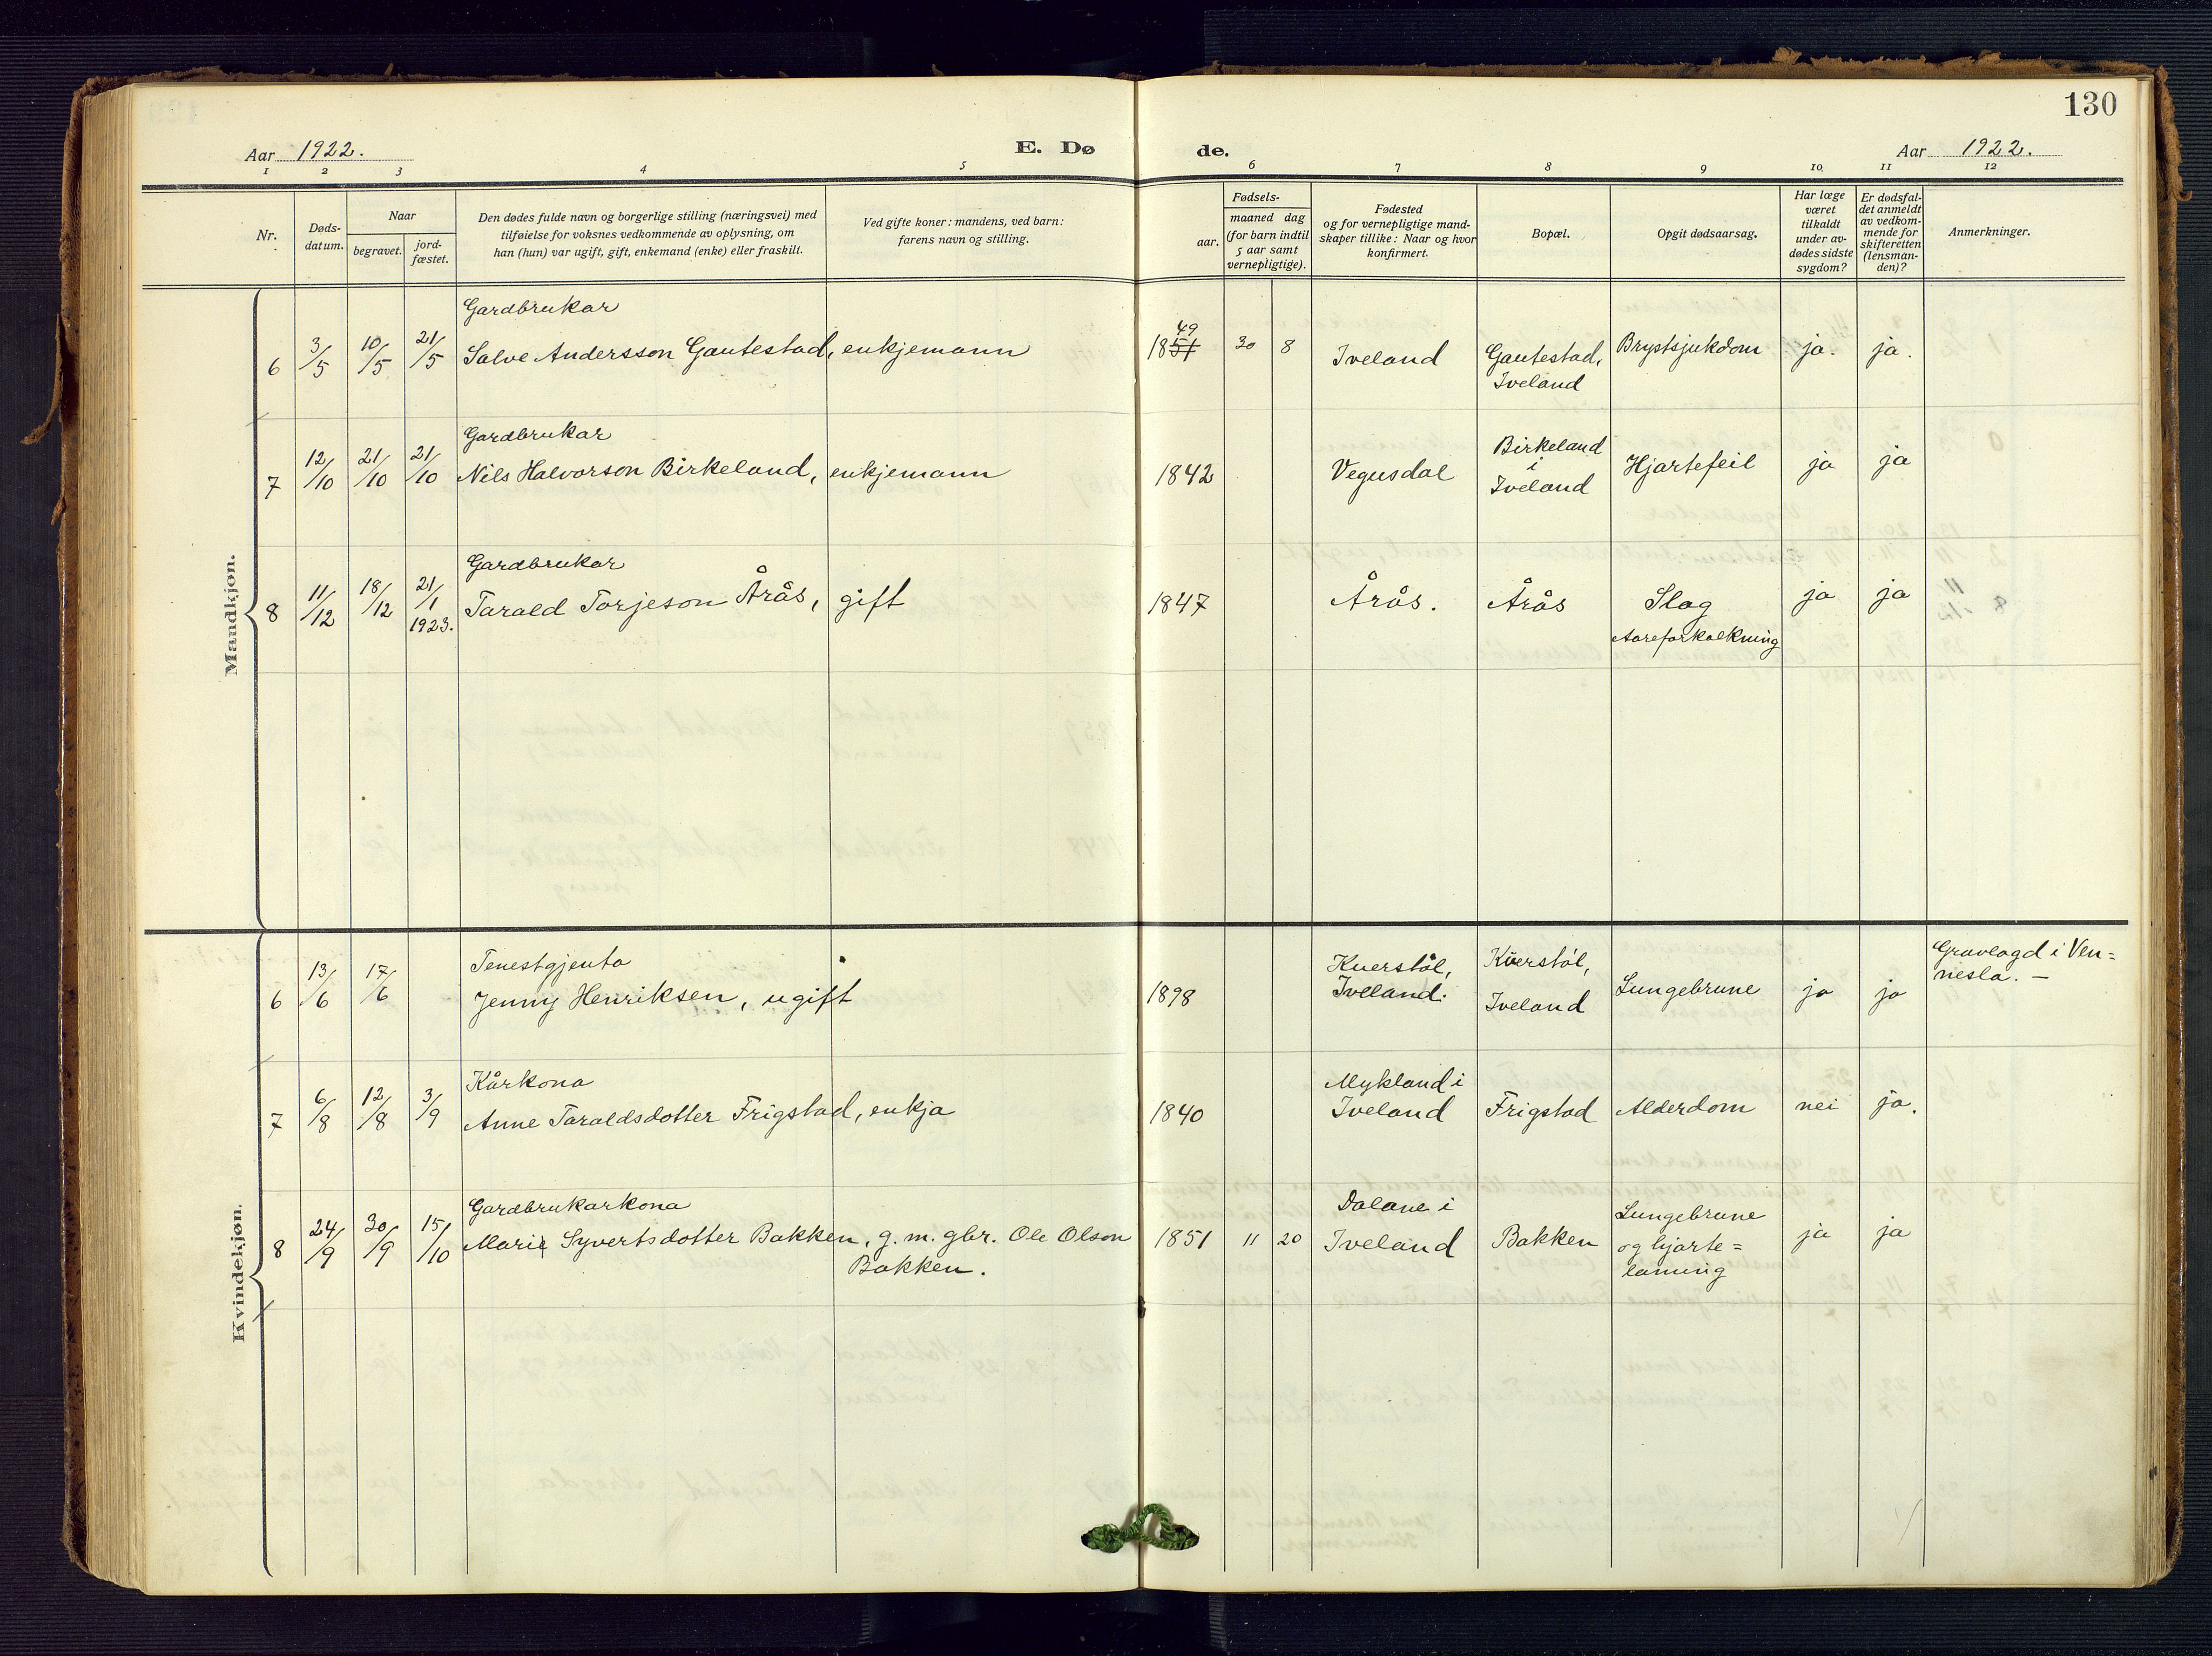 130
Aar 1922. E. Dø de. Aar 1922.
1 2 3 4 5 6 7 8 9 10. 11 12
Nr.
Døds-
datum.
Naar
begravet.
jord-
fæstet.
Den dødes fulde navn og borgerlige stilling (næringsvei) med
tilføielse for voksnes vedkommende av oplysning, om
han (hun) var ugift, gift, enkemand (enke) eller fraskilt.
Ved gifte koner: mandens, ved barn:
farens navn og stilling.
Fødsels-
aar.
maaned dag
(for barn indtil
5 aar samt
vernepligtige).
Fødested
og for vernepligtige mand-
skaper tillike: Naar og hvor
konfirmert.
Bopæl.
Opgit dødsaarsag.
Har læge
været
tilkaldt
under av-
dødes sidste
sygdom?
Er dødsfal-
det anmeldt
av vedkom-
mende for
skifteretten
(lensman-
den)?
Anmerkninger.
Mandkjøn.
Gardbrukar
6 3/5 10/5 21/5 Salve Andersson Gautestad, enkjemann 1851 49 30 8 Iveland Gautestad, Brystsjukdom ja. ja.
Iveland
Gardbrukar
7 12/10 21/10 21/10 Nils Halvorson Birkeland, enkjemann 1842 Vegusdal Birkeland Hjartefeil ja ja
i
Iveland
Gardbrukar
8 11/12 18/12 21/1 Tarald Torjeson Årås, gift 1847 Årås. Årås Slag ja ja
1923. Aareforkalkning
Kvindekjøn.
Tenestgjenta
6 13/6 17/6 Jenny Henriksen, ugift 1898 Kverstøl, Kverstøl, Lungebrune ja ja Gravlagd i Ven=
Iveland. Iveland nesla. —
Kårkona
7 6/8 12/8 3/9 Anne Taraldsdotter Frigstad, enkja 1840 Mykland i Frigstad Alderdom nei ja.
Iveland
Gardbrukarkona
8 24/9 30/9 15/10 Marie Syvertsdotter Bakken, g. m. gbr. Ole Olson 1851 11 20 Dalane i Bakken Lungebrune ja ja
Bakken. Iveland og hjarte=
laming